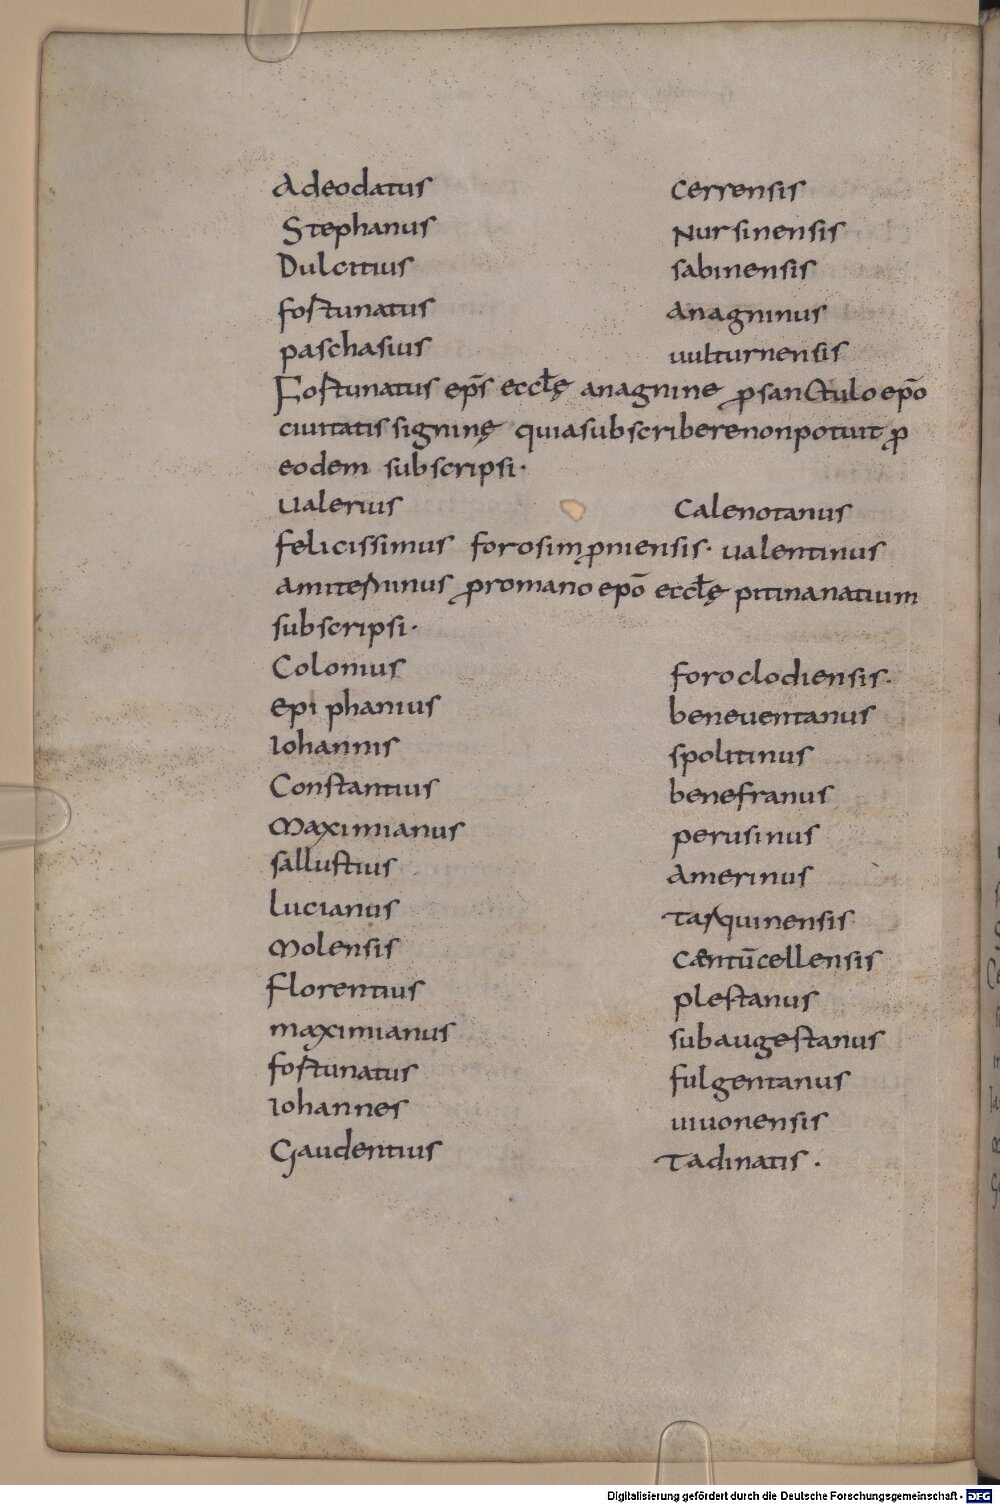 Adeodatus cerrensis
Stephanus Nursinensis
Dulcitius sabinensis
fortunatus anagninus
paschasius uulturnensis
Fortunatus ep̄s eccłę anagnine ꝓ sanctulo epō
ciuitatis signinę quia subscribere non potuit ꝓ
eodem subscripsi·
Ualerius Calenotanus
felicissimus forosimꝓniensis· ualentinus
amiterninus ꝓ romano epō eccłę pitinanatium
subscripsi·
Colonius foroclodiensis·
epiphanius beneuentanus
Iohannis spolitinus
Constantius benefranus
Maximianus perusinus
sallustius amerinus
lucianus tarquinensis
Molensis Centūcellensis
Florentius plestanus
maximianus subaugestanus
fortunatus fulgentanus
Iohannes uiuonensis
Gaudentius Tadinatis·
Digitalisierung gefördert durch die Deutsche Forschungsgemeinschaft - DFG